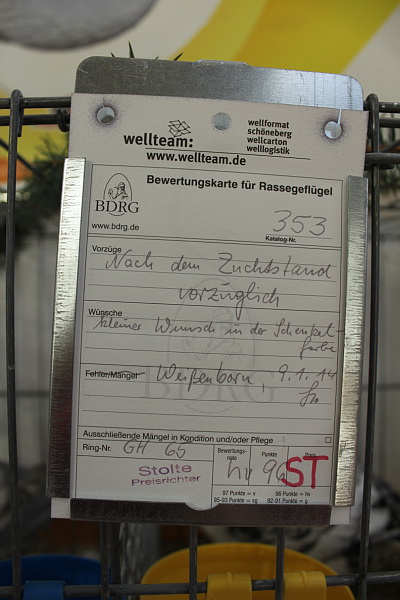 wellteam:
wellformat
schöneberg
wellcarton
welllogistik
www.wellteam.de
BDRG
Bewertungskarte für Rassegeflügel
www.bdrg.de
353
Katalog-Nr.
Vorzüge
Nach dem Zuchtstand
vorzüglich
Wünsche
kleiner Wunsch in der Schenkel-
farbe
Fehler/Mängel
Weißenborn, 9.1.14
BDRG
Ausschließende Mängel in Kondition und/oder Pflege
Ring-Nr. GH 65
Stolte
Preisrichter
Bewertungs-
note
Punkte
Preis
hv 96 ST
97 Punkte = v 96 Punkte = hv
95-93 Punkte = sg 92-91 Punkte = g